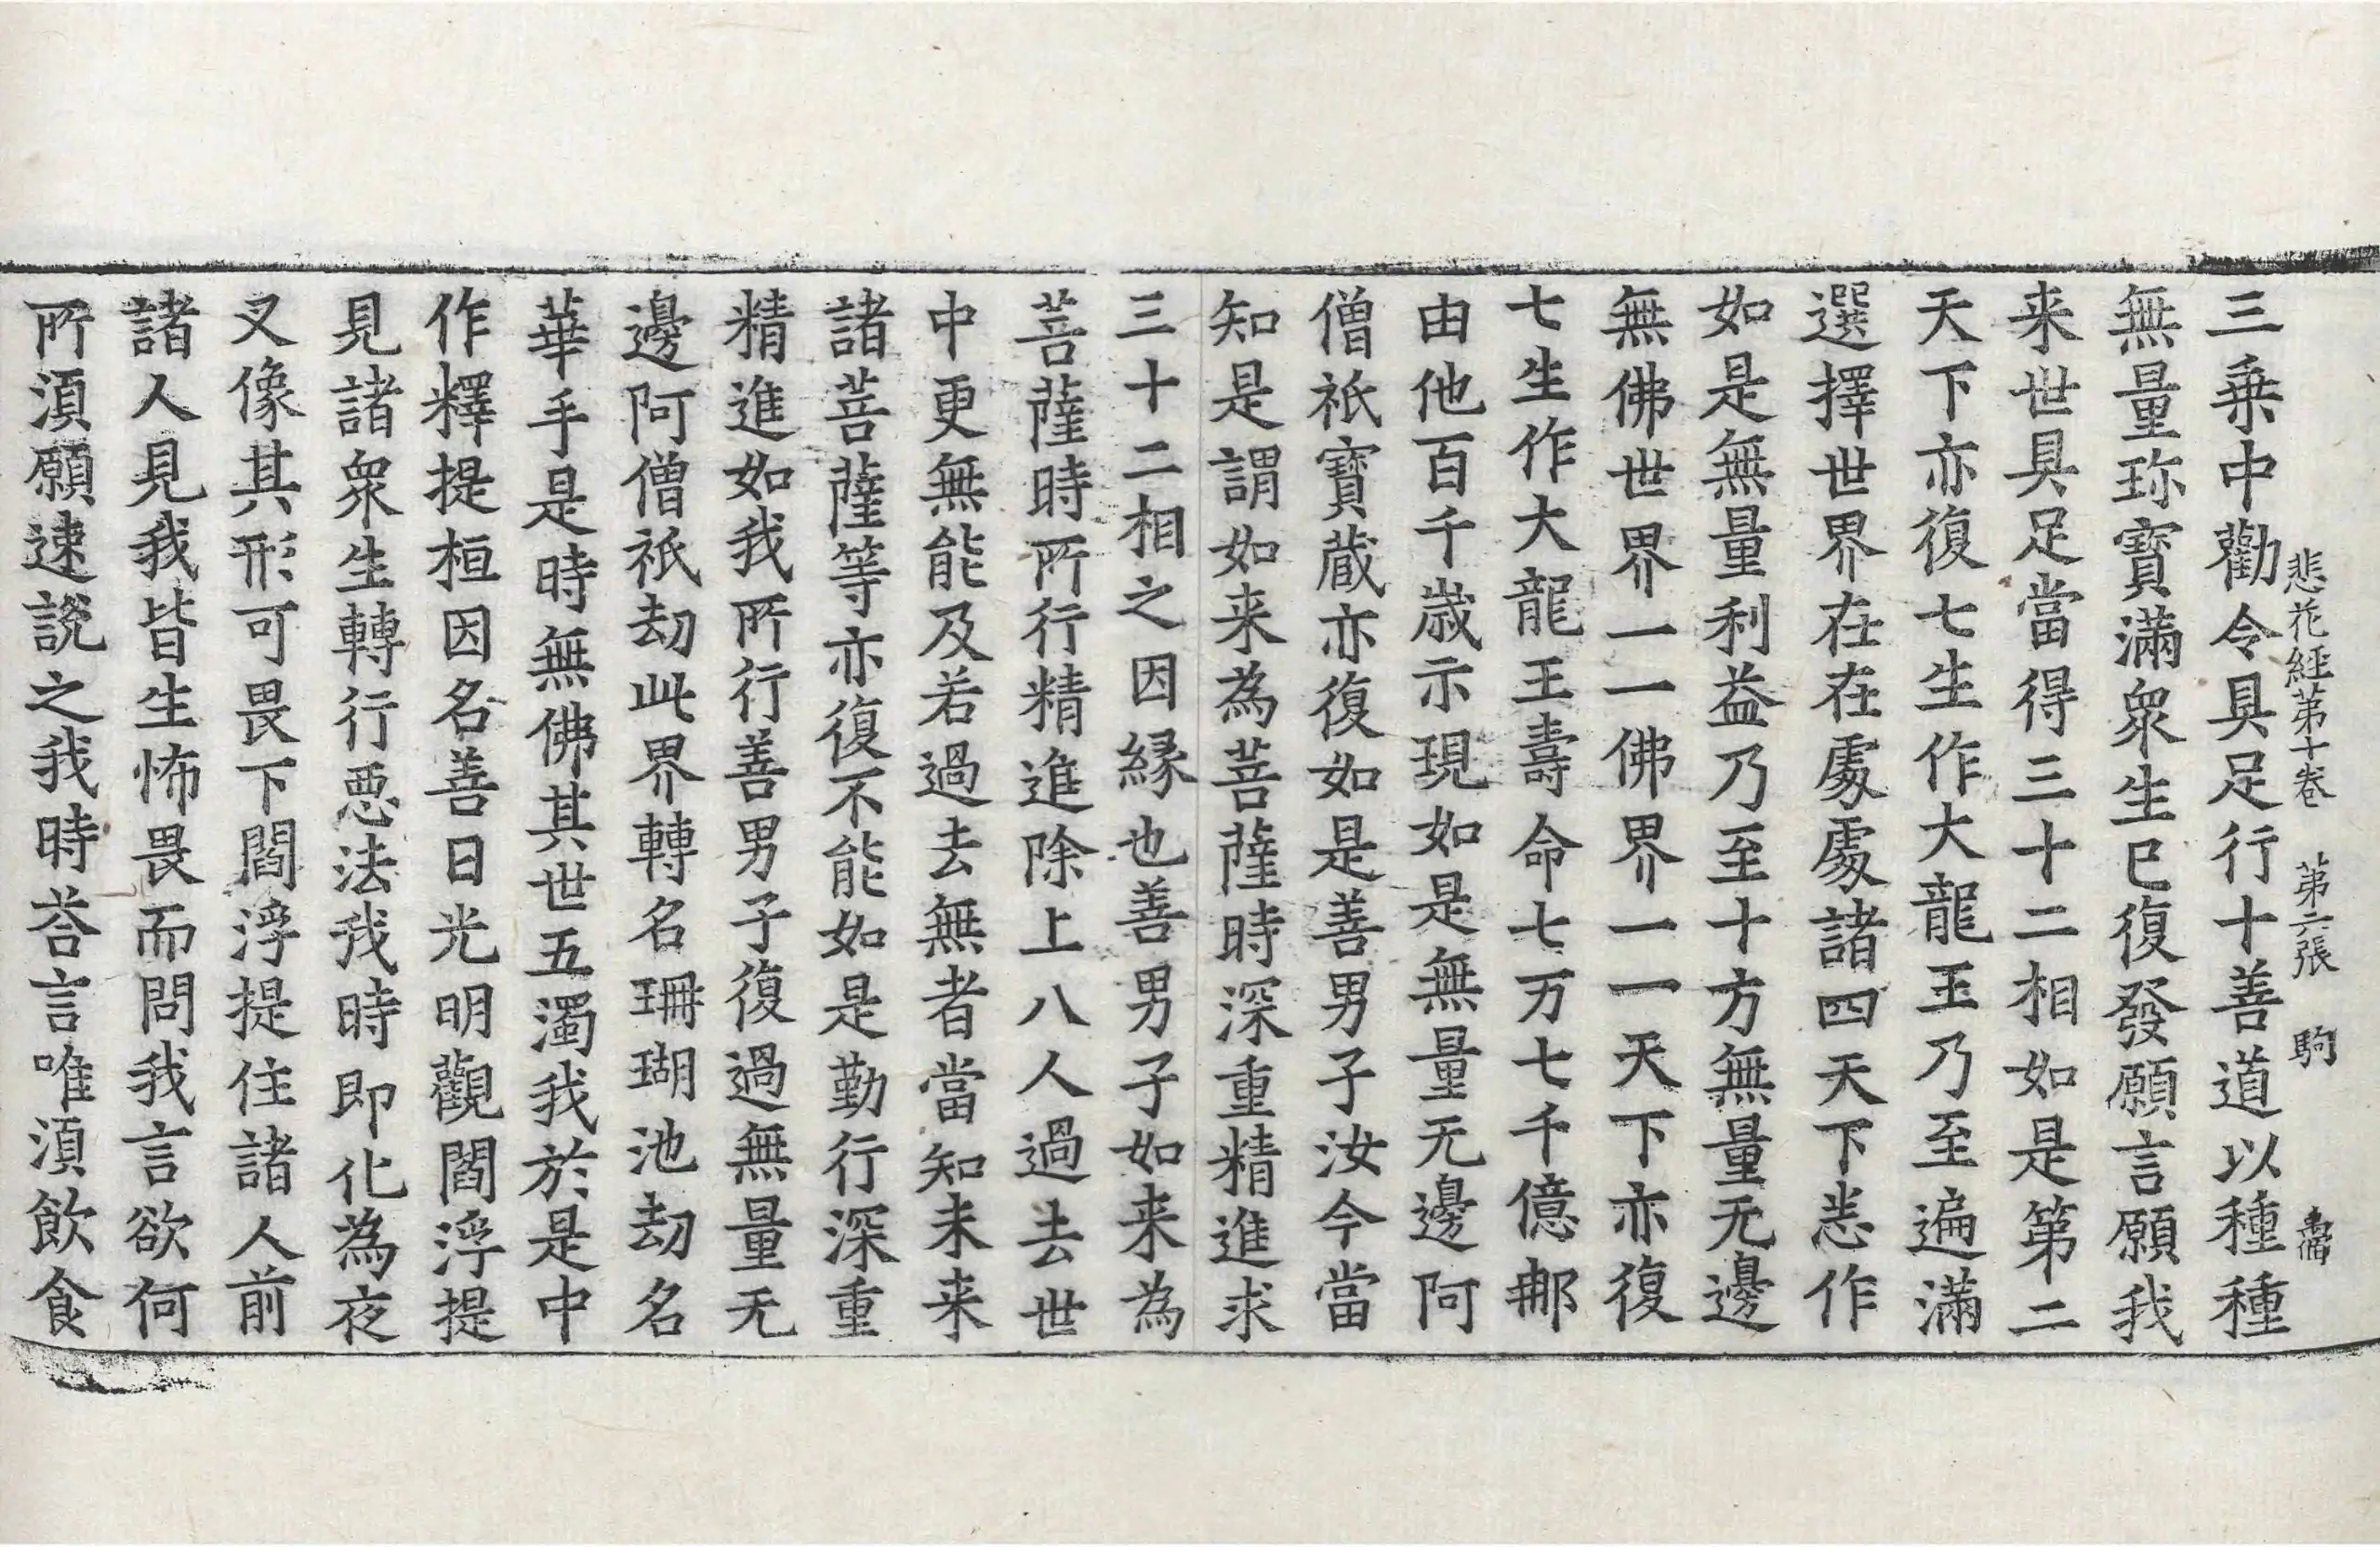 悲花經苐十卷　苐六張　駒
三乗中勸令具足行十善道以種種
無量珎寳滿衆生已復發願言願我
来世具足當得三十二相如是第二
天下亦復七生作大龍王乃至遍滿
選擇世界在在處處諸四天下悉作
如是無量利益乃至十方無量无邊
無佛世界一一佛界一一天下亦復
七生作大龍王壽命七万七千億那
由他百千歳示現如是無量无邊阿
僧祇寳蔵亦復如是善男子汝今當
知是謂如来為菩薩時深重精進求
三十二相之因縁也善男子如来為
菩薩時所行精進除上八人過去世
中更無能及若過去無者當知未来
諸菩薩等亦復不能如是勤行深重
精進如我所行善男子復過無量无
邊阿僧祇劫此界轉名珊瑚池劫名
華手是時無佛其世五濁我於是中
作釋提桓因名善日光明觀閻浮提
見諸衆生轉行惡法我時即化為夜
叉像其形可畏下閻浮提住諸人前
諸人見我皆生怖畏而問我言欲何
所湏願速說之我時荅言唯湏飲食